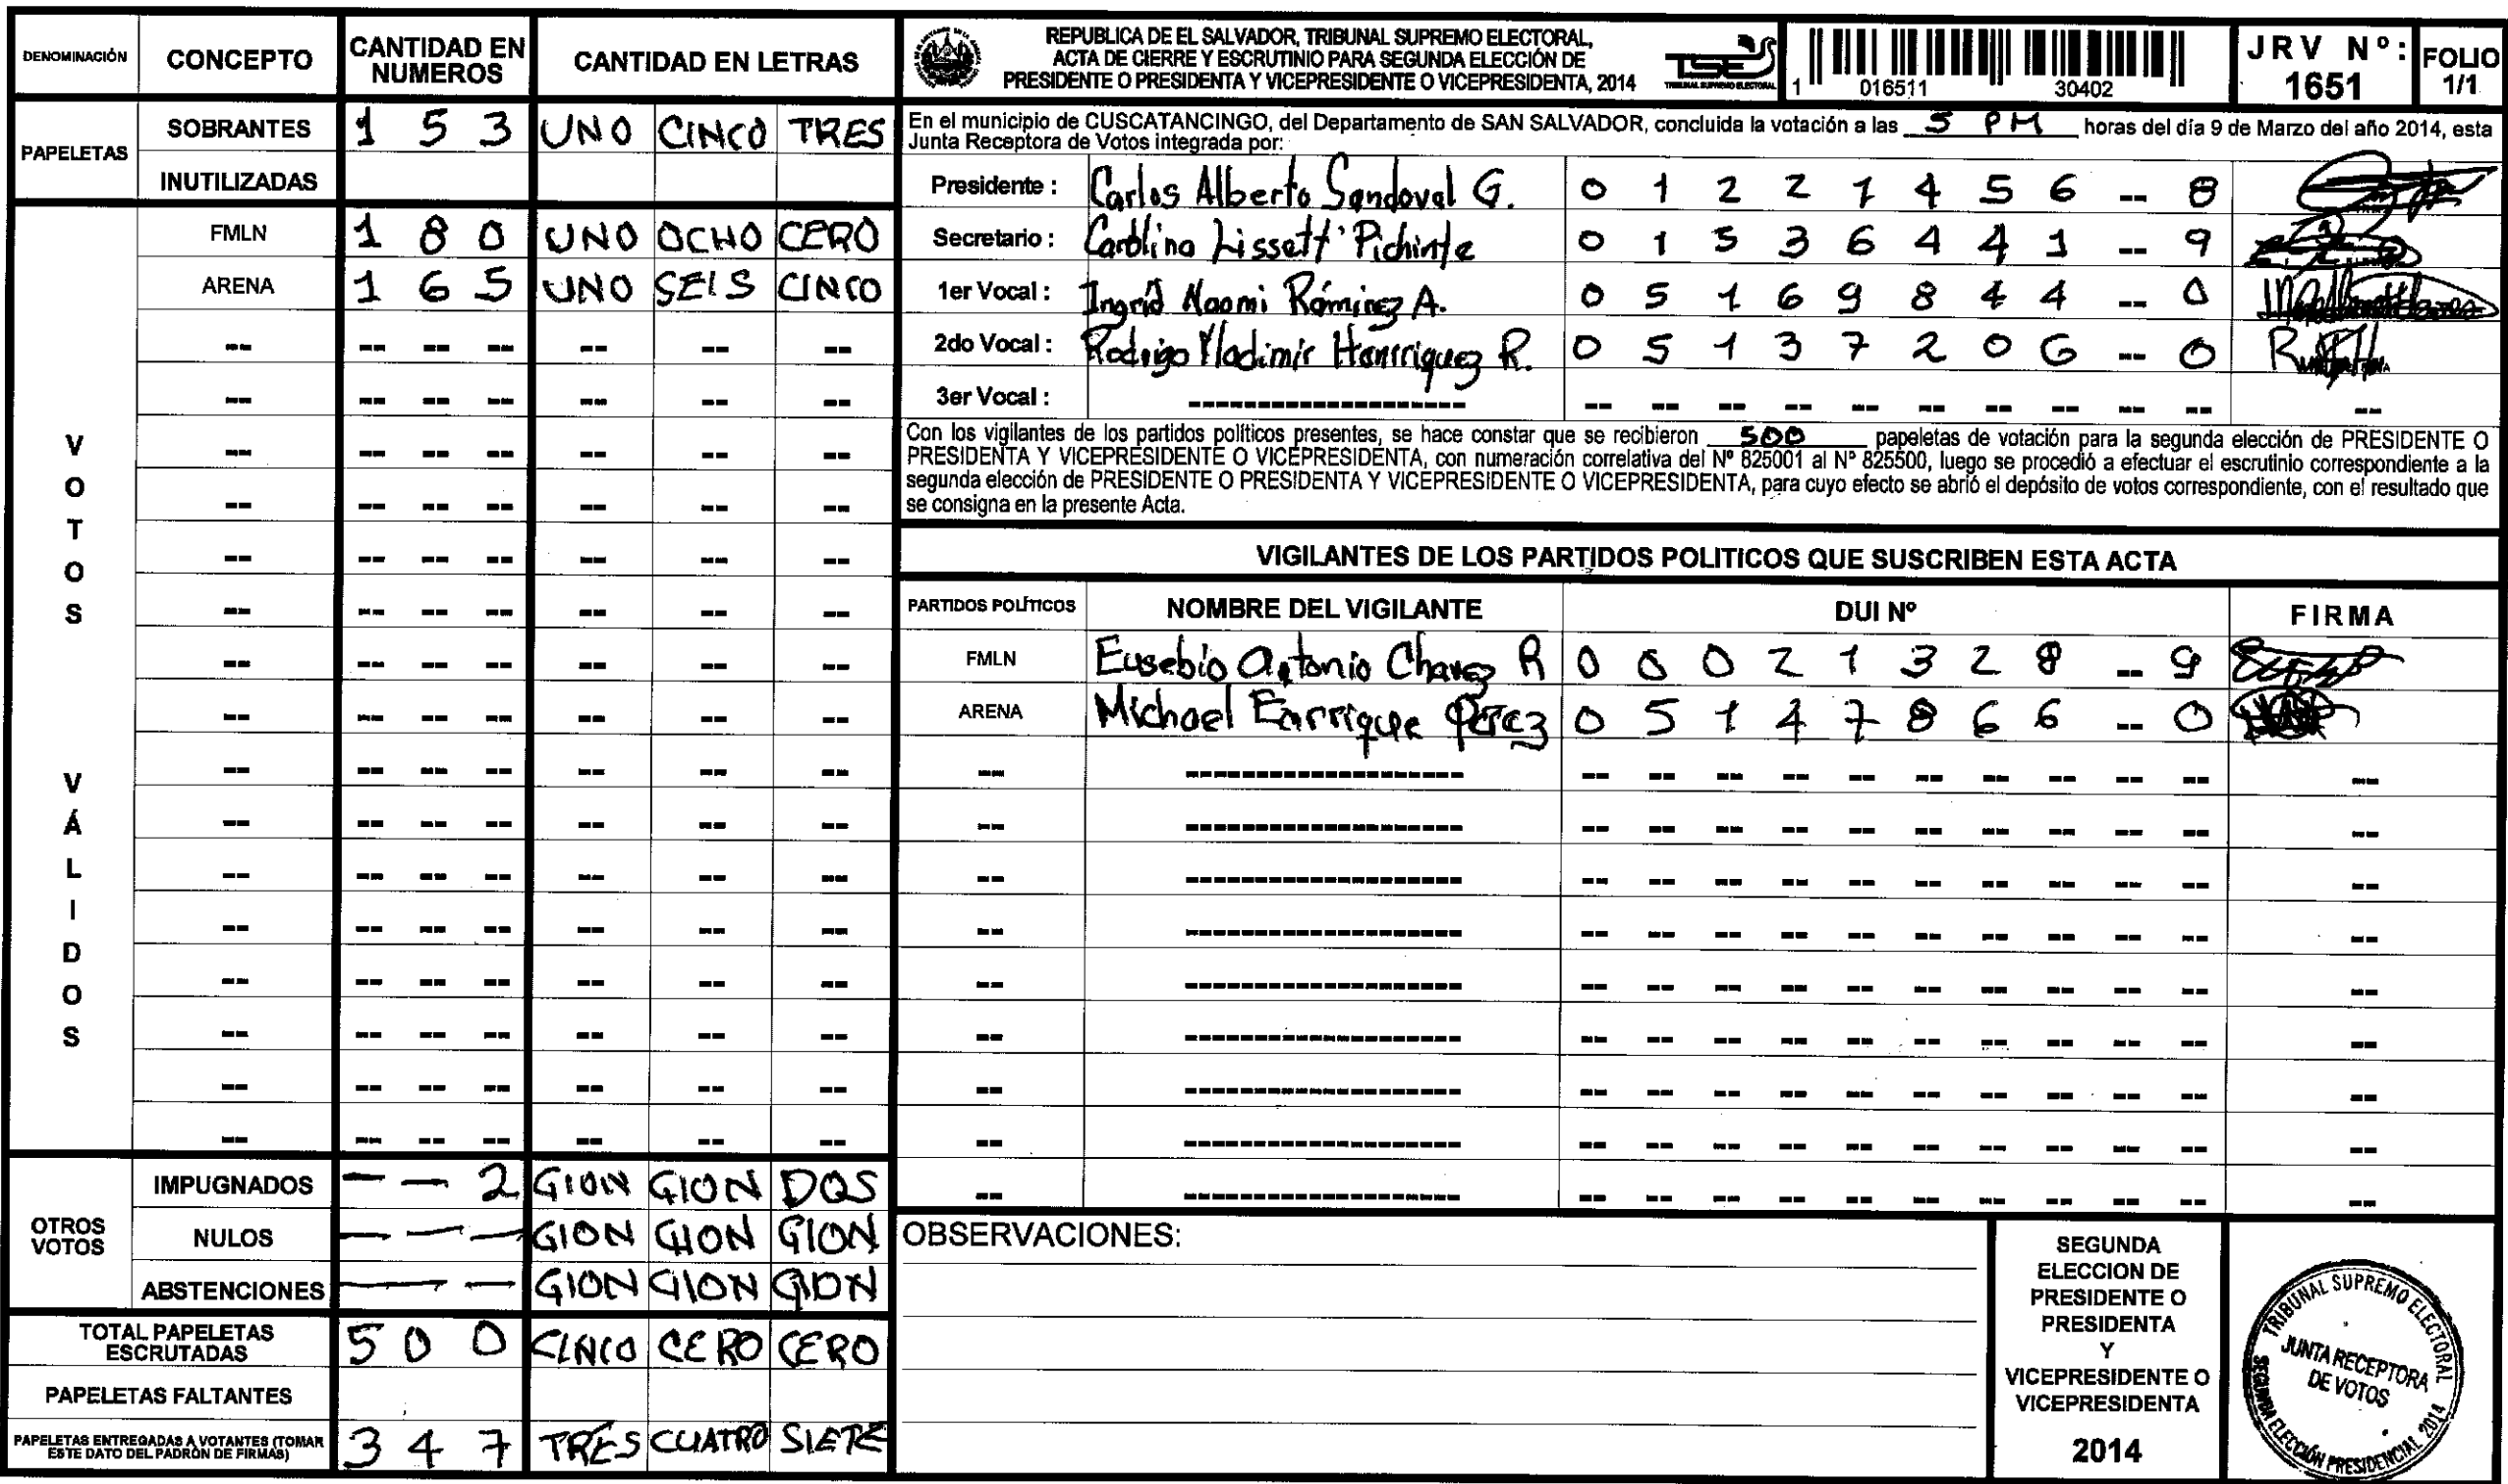 DENOMINACIÓN CONCEPTO CANTIDAD EN NUMEROS CANTIDAD EN LETRAS
PAPELETAS
SOBRANTES 1 5 3 UNO CINCO TRES
INUTILIZADAS
VOTOS VÁLIDOS
FMLN 1 8 0 UNO OCHO CERO
ARENA 1 6 5 UNO SEIS CINCO
OTROS VOTOS
IMPUGNADOS — — 2 GION GION DOS
NULOS — — — GION GION GION
ABSTENCIONES — — — GION GION GION
TOTAL PAPELETAS ESCRUTADAS 5 0 0 CINCO CERO CERO
PAPELETAS FALTANTES
PAPELETAS ENTREGADAS A VOTANTES (TOMAR ESTE DATO DEL PADRÓN DE FIRMAS) 3 4 7 TRES CUATRO SIETE
REPUBLICA DE EL SALVADOR, TRIBUNAL SUPREMO ELECTORAL,
ACTA DE CIERRE Y ESCRUTINIO PARA SEGUNDA ELECCIÓN DE
PRESIDENTE O PRESIDENTA Y VICEPRESIDENTE O VICEPRESIDENTA, 2014
TSE
TRIBUNAL SUPREMO ELECTORAL
1 016511 30402
JRV Nº: 1651
FOLIO 1/1
En el municipio de CUSCATANCINGO, del Departamento de SAN SALVADOR, concluida la votación a las 5 PM horas del día 9 de Marzo del año 2014, esta
Junta Receptora de Votos integrada por:
Presidente : Carlos Alberto Sandoval G. 0 1 2 2 1 4 5 6 -- 8
Secretario : Carolina Lissett Pichinte 0 1 5 3 6 4 4 1 -- 9
1er Vocal : Ingrid Naomi Ramirez A. 0 5 1 6 9 8 4 4 -- 0
2do Vocal : Rodrigo Vladimir Henrriquez R. 0 5 1 3 7 2 0 6 -- 0
3er Vocal :
Con los vigilantes de los partidos políticos presentes, se hace constar que se recibieron 500 papeletas de votación para la segunda elección de PRESIDENTE O
PRESIDENTA Y VICEPRESIDENTE O VICEPRESIDENTA, con numeración correlativa del Nº 825001 al Nº 825500, luego se procedió a efectuar el escrutinio correspondiente a la
segunda elección de PRESIDENTE O PRESIDENTA Y VICEPRESIDENTE O VICEPRESIDENTA, para cuyo efecto se abrió el depósito de votos correspondiente, con el resultado que
se consigna en la presente Acta.
VIGILANTES DE LOS PARTIDOS POLITICOS QUE SUSCRIBEN ESTA ACTA
PARTIDOS POLÍTICOS NOMBRE DEL VIGILANTE DUI Nº FIRMA
FMLN Eusebio Antonio Chavez R 0 0 0 2 1 3 2 8 -- 9
ARENA Michael Enrrique Perez 0 5 1 4 7 8 6 6 -- 0
OBSERVACIONES:
SEGUNDA
ELECCION DE
PRESIDENTE O
PRESIDENTA
Y
VICEPRESIDENTE O
VICEPRESIDENTA
2014
TRIBUNAL SUPREMO ELECTORAL
JUNTA RECEPTORA
DE VOTOS
SEGUNDA ELECCIÓN PRESIDENCIAL 2014